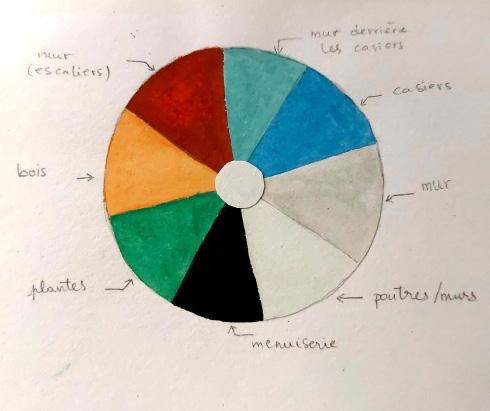 mur derrière
les casiers
mur
(escaliers)
casiers
bois
mur
plantes
poutres/murs
menuiserie